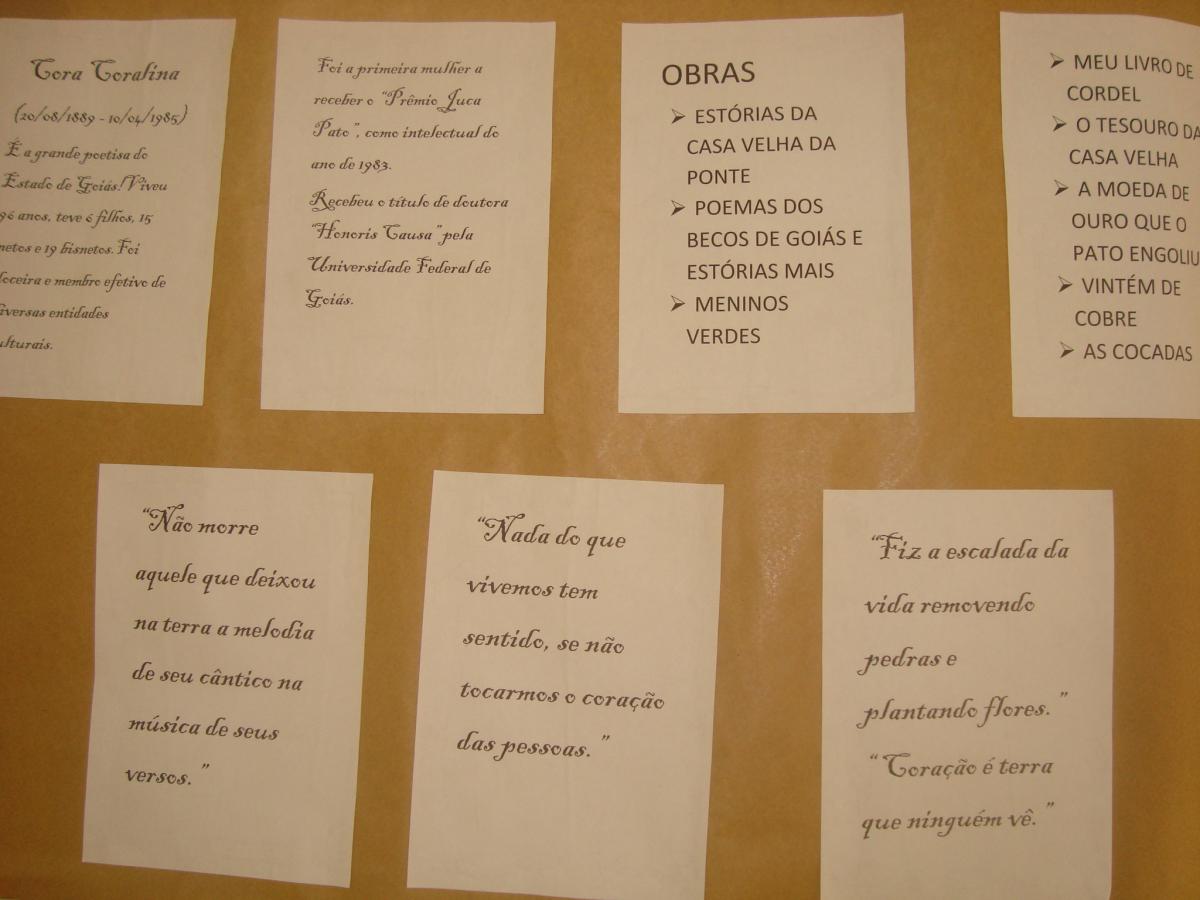 Cora Coralina
(20/08/1889 - 10/04/1985)
É a grande poetisa do
Estado de Goiás! Viveu
96 anos, teve 6 filhos, 15
netos e 19 bisnetos. Foi
doceira e membro efetivo de
diversas entidades
culturais.
Foi a primeira mulher a
receber o "Prêmio Juca
Pato", como intelectual do
ano de 1983.
Recebeu o título de doutora
"Honoris Causa" pela
Universidade Federal de
Goiás.
OBRAS
➢ ESTÓRIAS DA
CASA VELHA DA
PONTE
➢ POEMAS DOS
BECOS DE GOIÁS E
ESTÓRIAS MAIS
➢ MENINOS
VERDES
➢ MEU LIVRO DE
CORDEL
➢ O TESOURO DA
CASA VELHA
➢ A MOEDA DE
OURO QUE O
PATO ENGOLIU
➢ VINTÉM DE
COBRE
➢ AS COCADAS
"Não morre
aquele que deixou
na terra a melodia
de seu cântico na
música de seus
versos."
"Nada do que
vivemos tem
sentido, se não
tocarmos o coração
das pessoas."
"Fiz a escalada da
vida removendo
pedras e
plantando flores."
"Coração é terra
que ninguém vê."